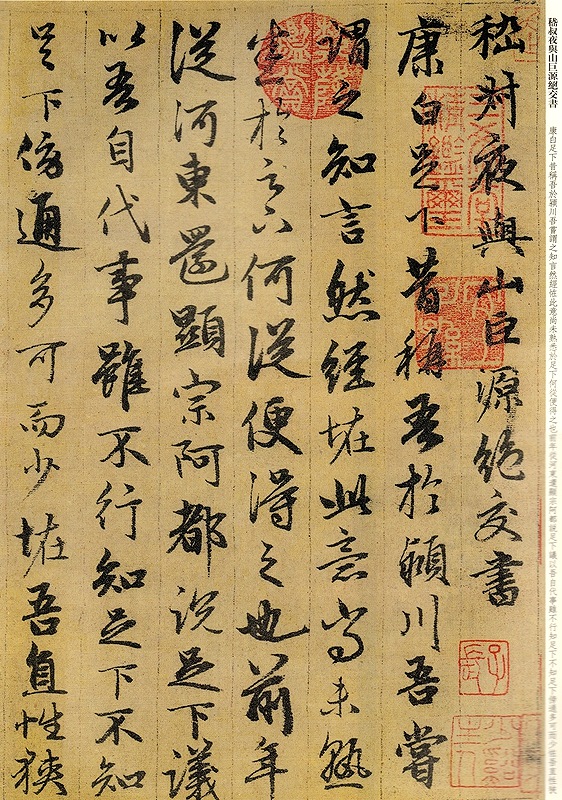 嵇叔夜與山巨源絕交書
康白足下昔稱吾於潁川吾嘗謂之知言然經怪此意尚未熟悉於足下何從便得之也前年從河東還顯宗阿都說足下議以吾自代事雖不行知足下不知足下傍通多可而少怪吾直性狹
嵇叔夜與山巨源絕交書
康白足下昔稱吾於潁川吾嘗
謂之知言然經怪此意尚未熟
悉於足下何從便得之也前年
從河東還顯宗阿都說足下議
以吾自代事雖不行知足下不知
足下傍通多可而少怪吾直性狹